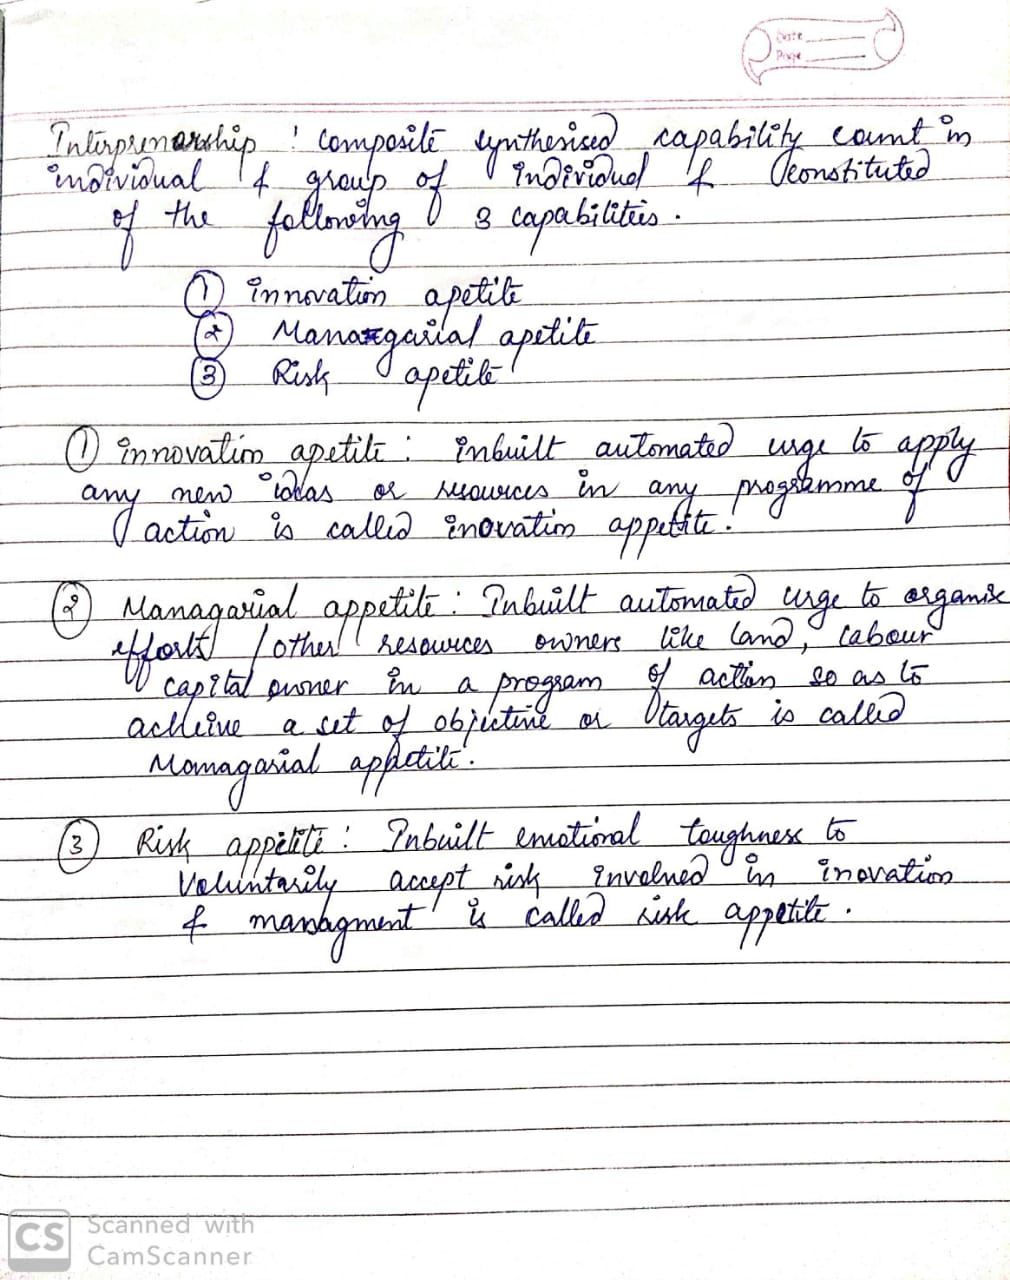 Date
Page
Interprenarship : Composite synthesised capability count in
individual & group of individual & constituted
of the following 3 capabilities.
① innovation apetite
② Managarial apetite
③ Risk apetite
① innovation apetite : inbuilt automated urge to apply
any new ideas or resources in any programme of
action is called inovation appetite.
② Managarial appetite : Inbuilt automated urge to organise
efforts / other resources owners like land, labour
capital owner in a program of action so as to
acheive a set of objective or targets is called
Momagarial appetite.
③ Risk appetite : Inbuilt emotional toughness to
Voluntarily accept risk involved in inovation
& managment is called risk appetite.
CS Scanned with
CamScanner